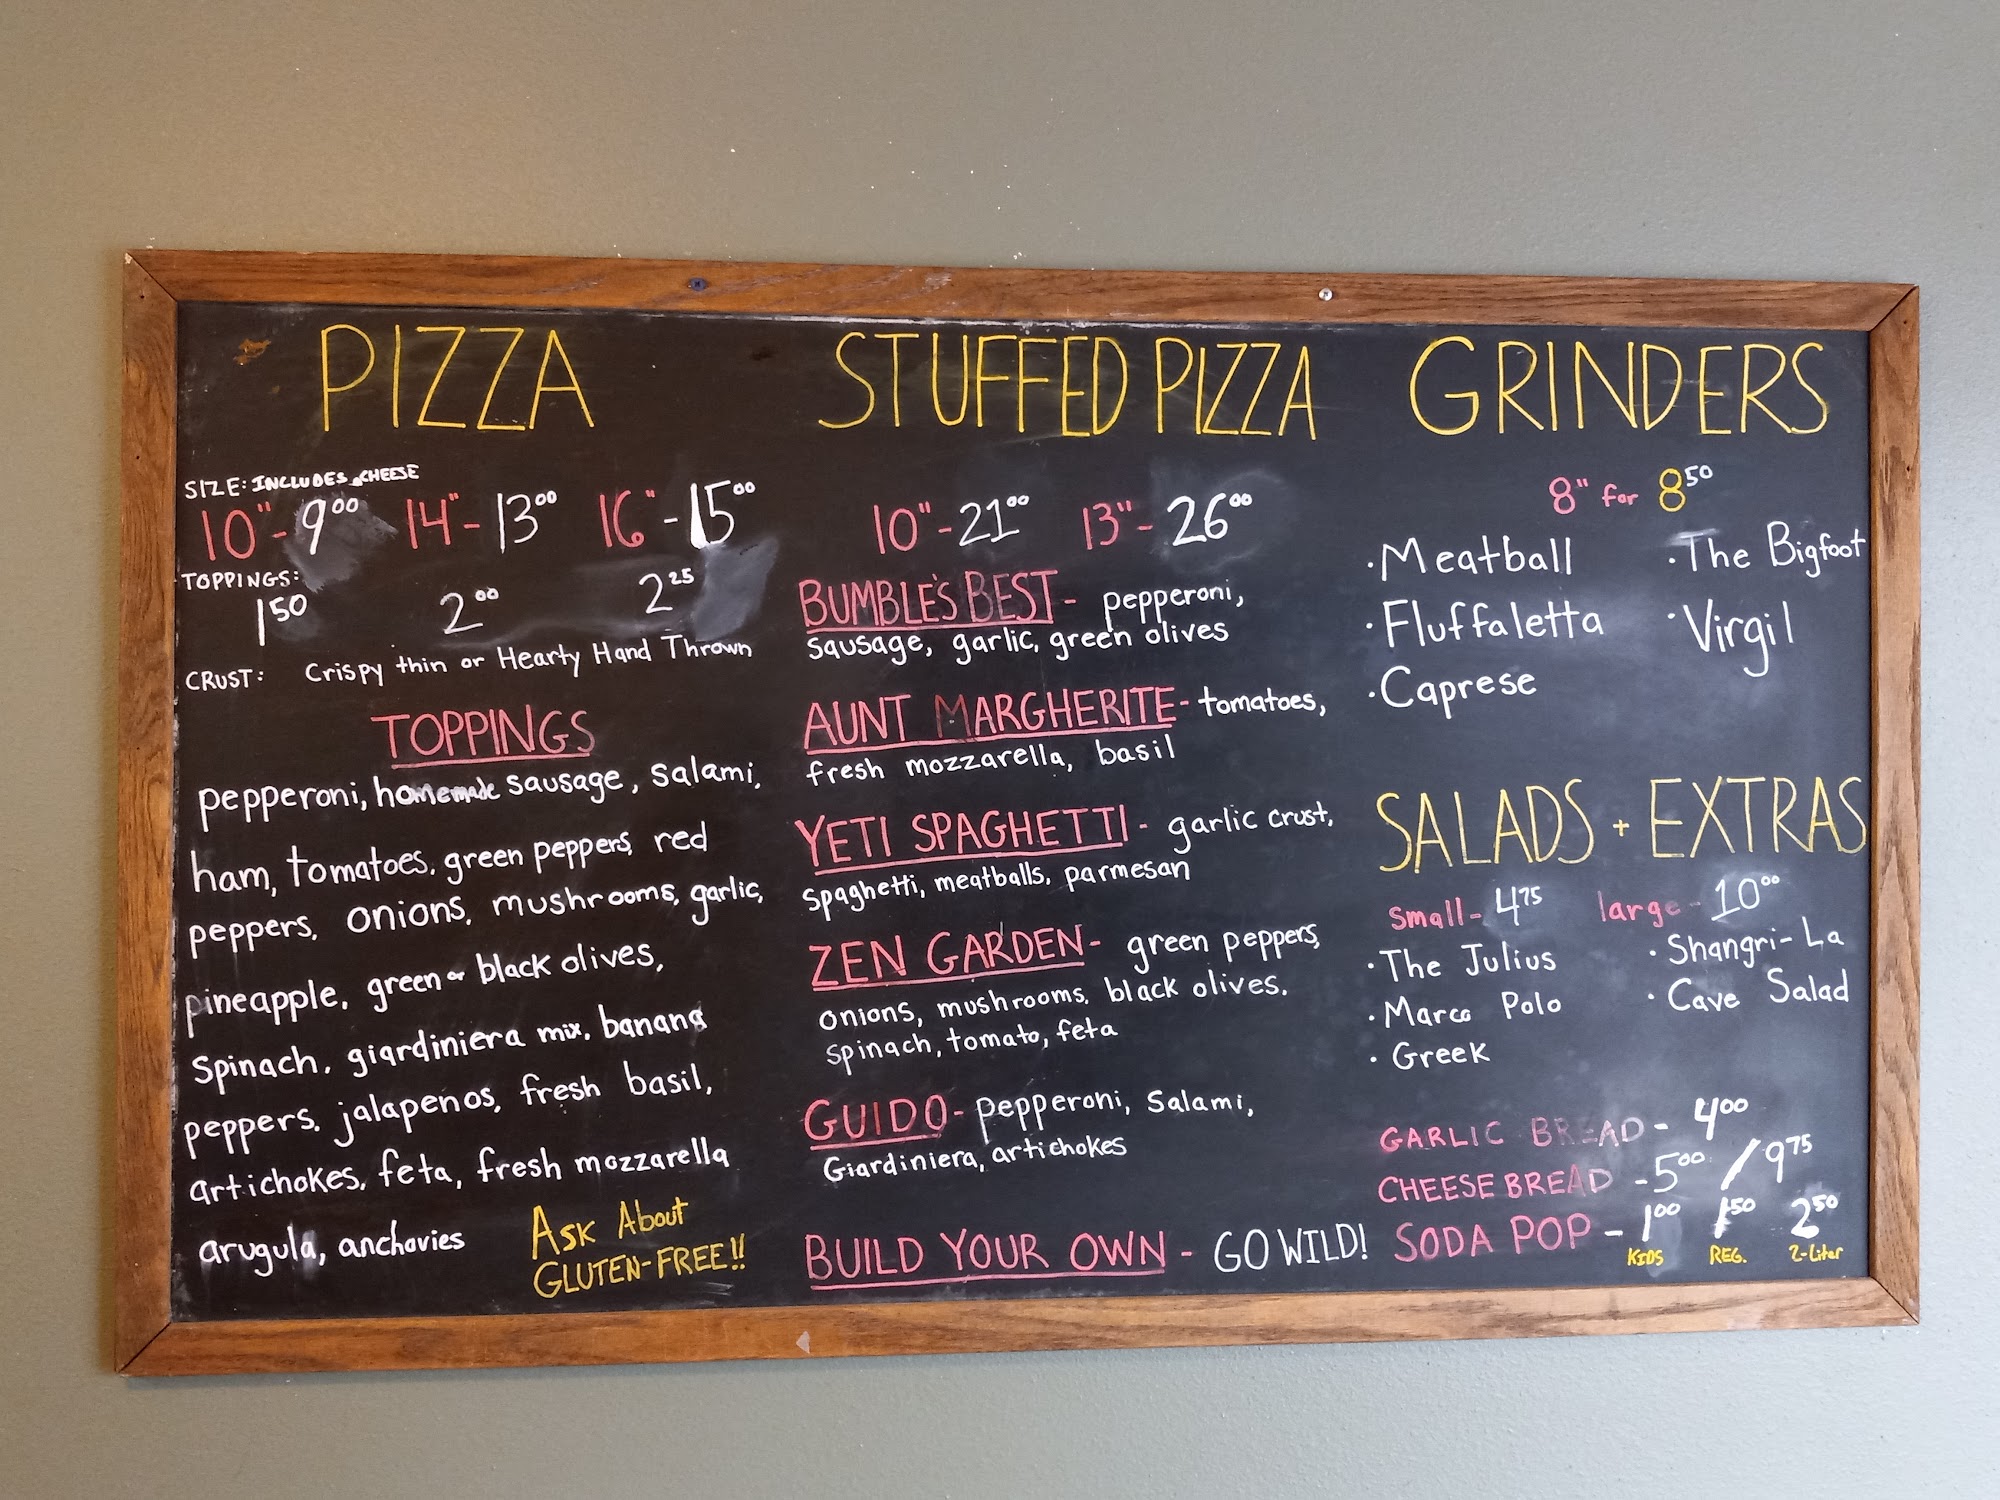 PIZZA
SIZE: INCLUDES CHEESE
10" - 9 00 14" - 13 00 16" - 15 00
TOPPINGS:
1 50 2 00 2 25
CRUST: Crispy thin or Hearty Hand Thrown
TOPPINGS
pepperoni, homemade sausage, salami,
ham, tomatoes, green peppers, red
peppers, onions, mushrooms, garlic,
pineapple, green or black olives,
spinach, giardiniera mix, banana
peppers, jalapenos, fresh basil,
artichokes, feta, fresh mozzarella
arugula, anchovies
ASK ABOUT
GLUTEN-FREE!!
STUFFED PIZZA
10" - 21 00 13" - 26 00
BUMBLE'S BEST - pepperoni,
sausage, garlic, green olives
AUNT MARGHERITE - tomatoes,
fresh mozzarella, basil
YETI SPAGHETTI - garlic crust,
spaghetti, meatballs, parmesan
ZEN GARDEN - green peppers,
onions, mushrooms, black olives,
spinach, tomato, feta
GUIDO - pepperoni, Salami,
Giardiniera, artichokes
BUILD YOUR OWN - GO WILD!
GRINDERS
8" for 8 50
· Meatball
· Fluffaletta
· Caprese
· The Bigfoot
· Virgil
SALADS + EXTRAS
small - 4 75 large - 10 00
· The Julius
· Marco Polo
· Greek
· Shangri-La
· Cave Salad
GARLIC BREAD - 4 00
CHEESE BREAD - 5 00 / 9 75
SODA POP - 1 00 1 50 2 50
KIDS REG. 2-Liter